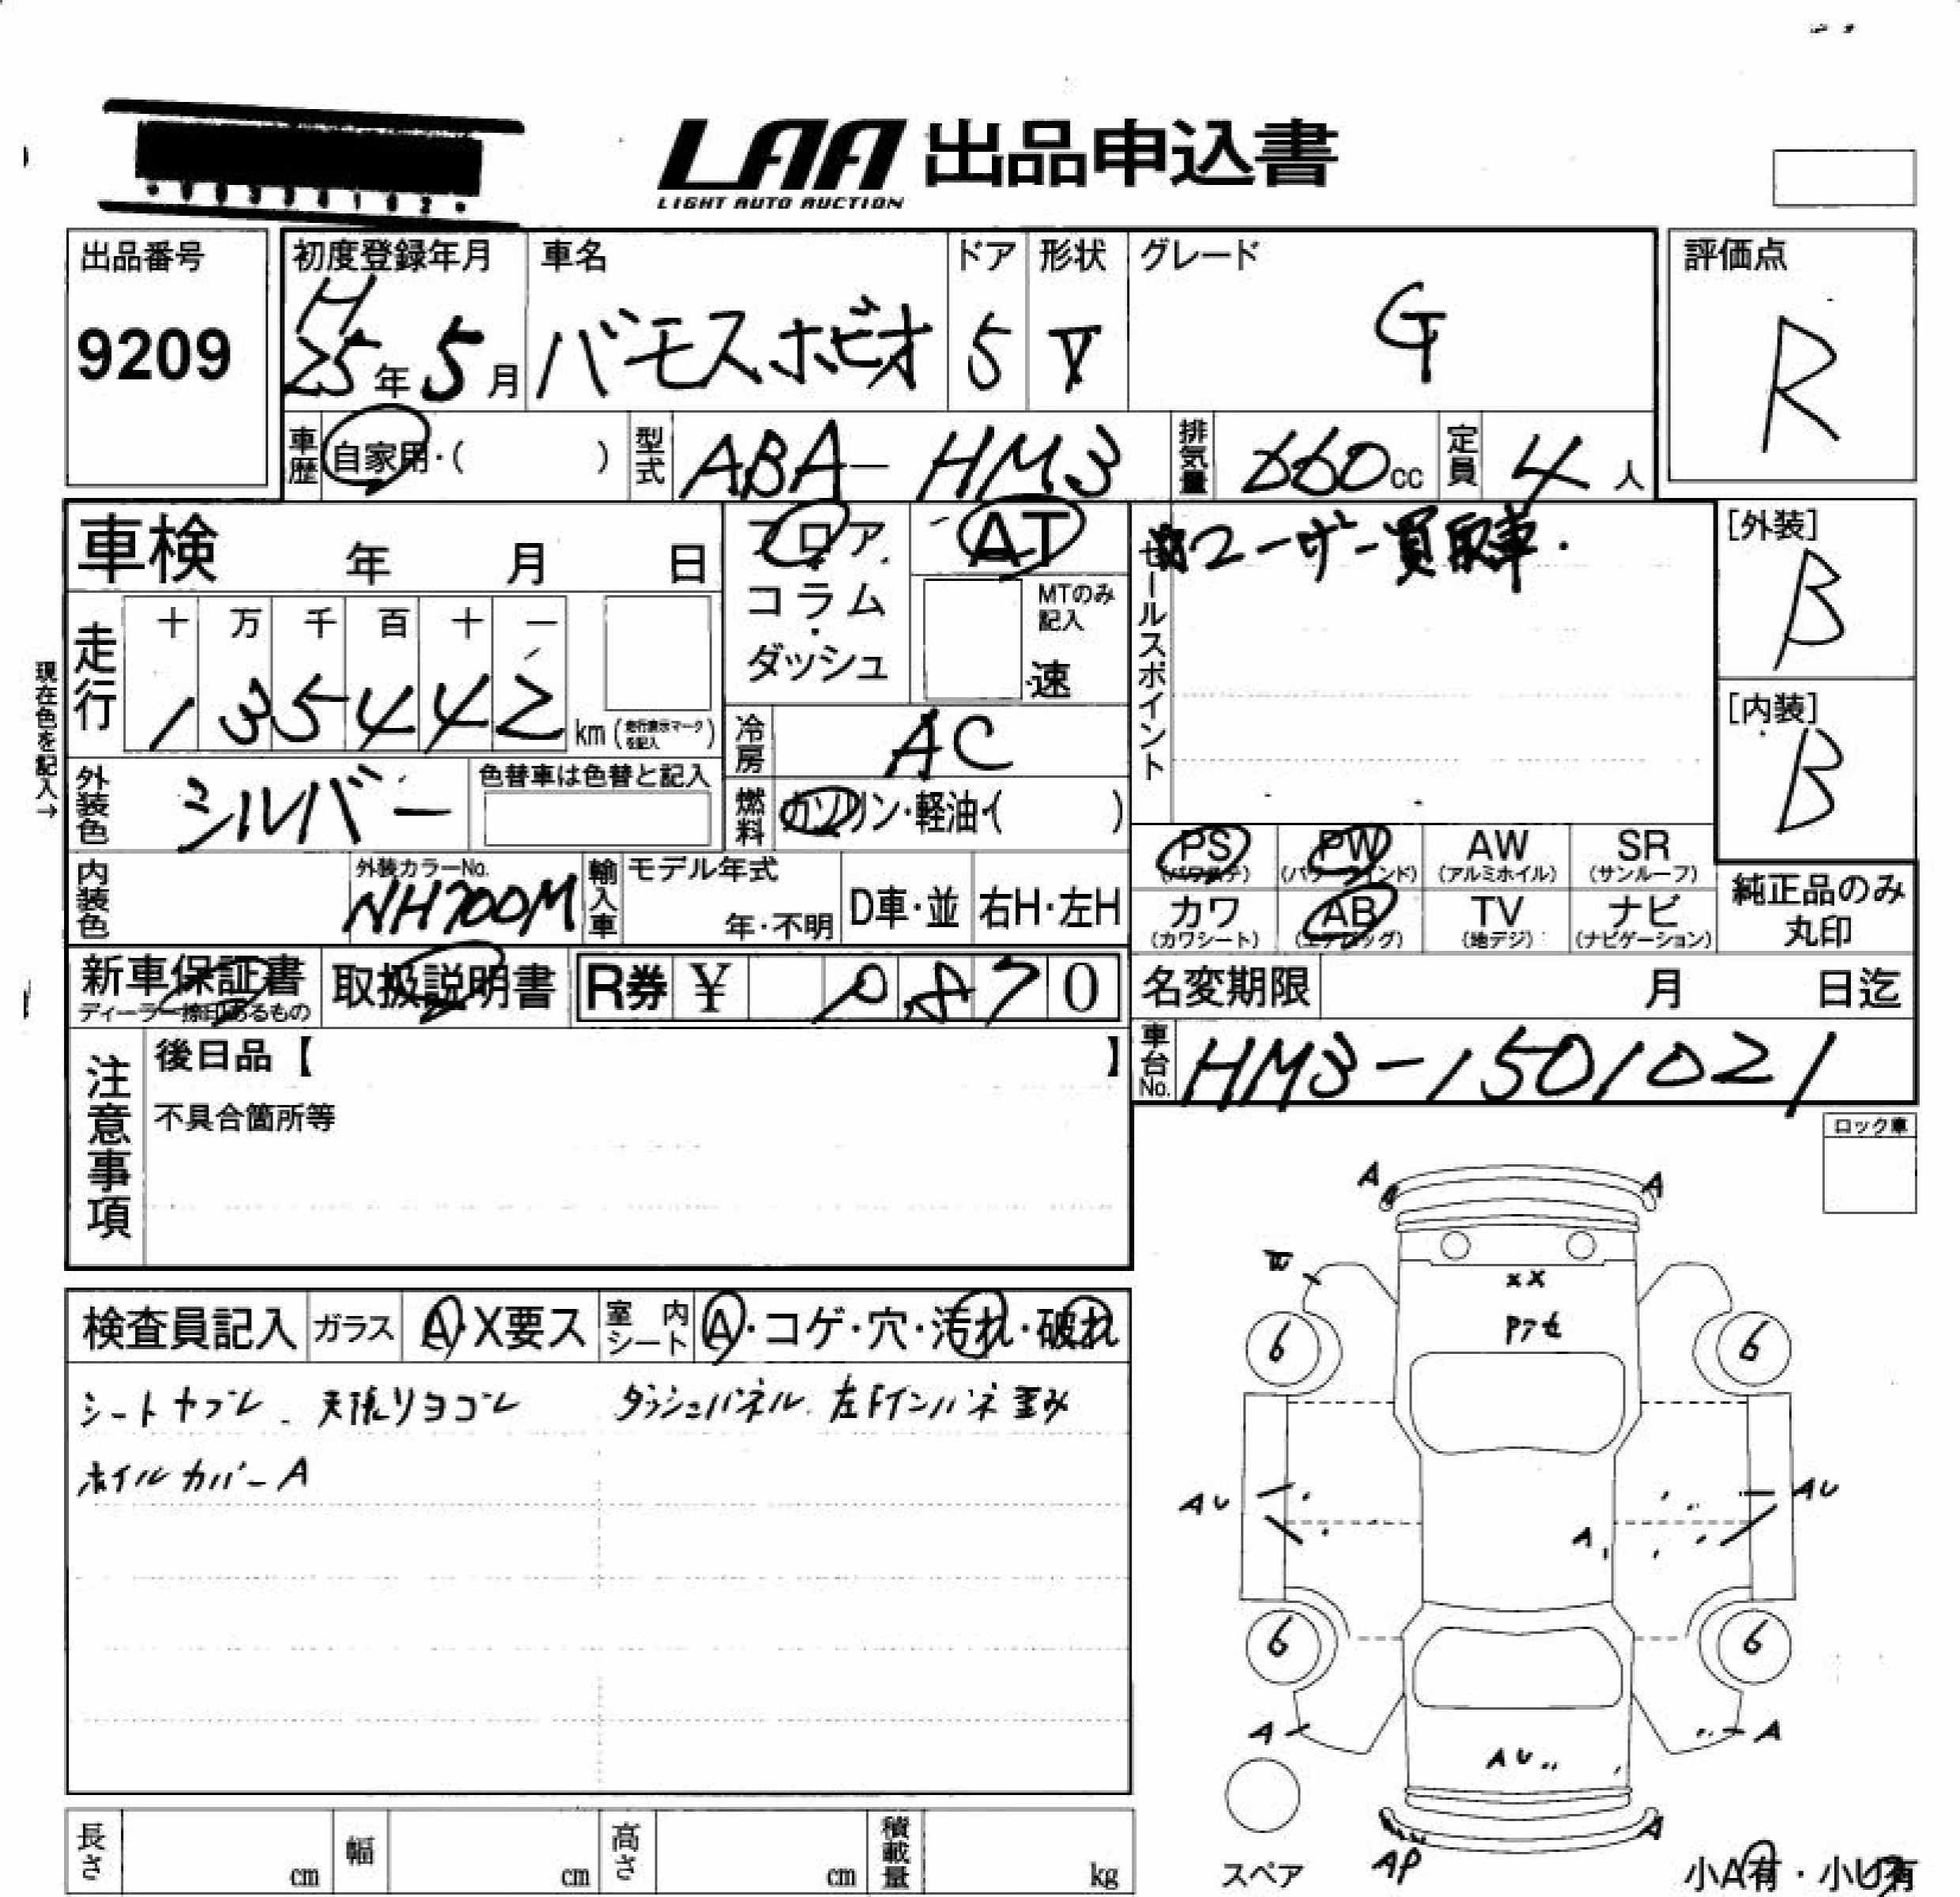 LAA 出品申込書
LIGHT AUTO AUCTION
出品番号
9209
初度登録年月
H
25年5月
車名
バモスホビオ
ドア
5
形状
V
グレード
G
評価点
R
車歴 自家用・( )
型式 ABA-HM3
排気量 660cc
定員 4人
車検 年 月 日
フロア・
コラム・
ダッシュ
AT
MTのみ記入
速
セールスポイント
ユーザー買取車.
[外装]
B
[内装]
B
現在色を記入→
走行
十 万 千 百 十 一
1 3 5 4 4 2 km (走行表示マークを記入)
冷房 AC
外装色 シルバー
色替車は色替と記入
燃料 ガソリン・軽油・( )
PS (パワステ) PW (パワーウインド) AW (アルミホイル) SR (サンルーフ)
カワ (カワシート) AB (エアバッグ) TV (地デジ) ナビ (ナビゲーション)
純正品のみ
丸印
内装色
外装カラーNo.
NH700M
輸入車
モデル年式
年・不明
D車・並
右H・左H
新車保証書
ディーラー捺印あるもの
取扱説明書
R券 ¥ 870
名変期限 月 日迄
車台No. HM3-1501021
注意事項
後日品【 】
不具合箇所等
ロック車
検査員記入 ガラス A・X要ス 室内シート A・コゲ・穴・汚れ・破れ
シートヤブレ. 天張りヨゴレ ダッシュパネル. 左Fインパネ歪み
ホイルカバーA
A A
A
W
XX
6 6
AU AU
A
6 6
A A
AU
AP A
スペア
小A有・小U有
長さ cm
幅 cm
高さ cm
積載量 kg